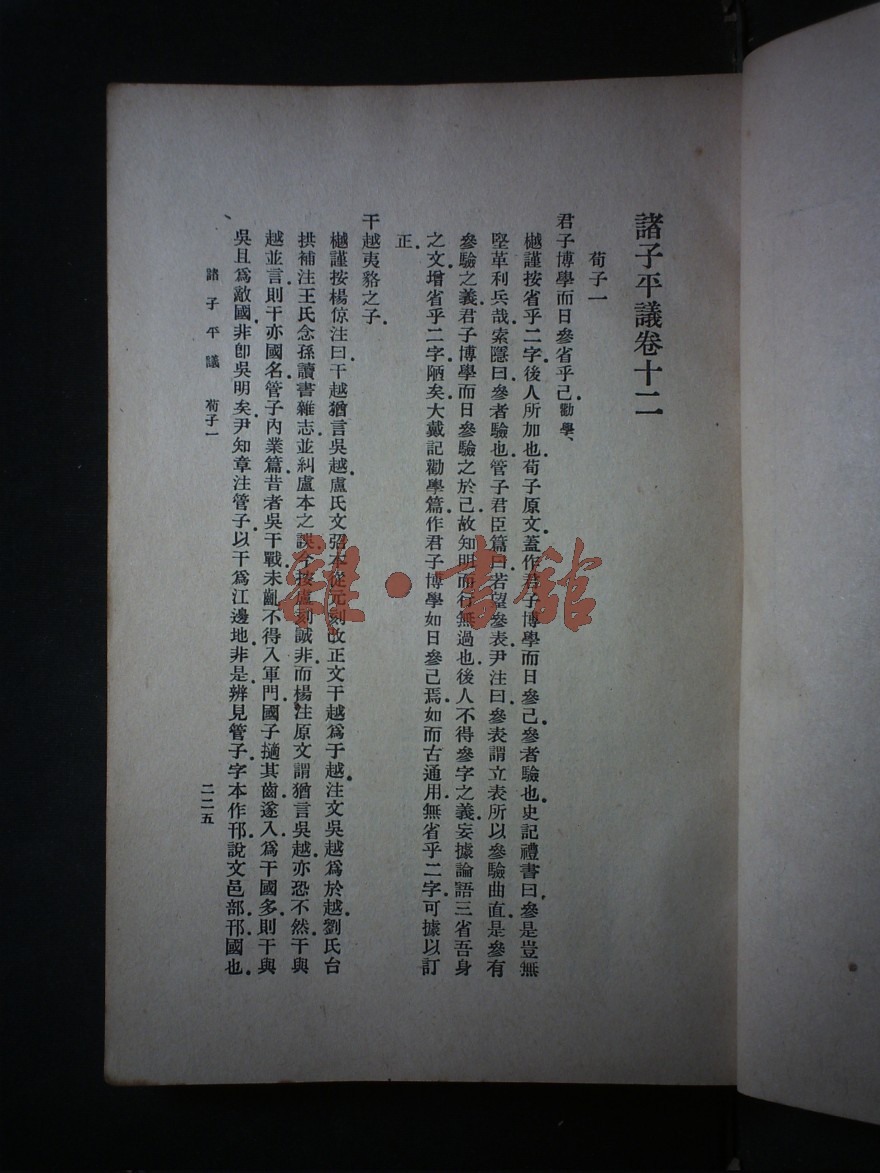 諸子平議卷十二
荀子一
君子博學而日參省乎己。勸學、
樾謹按省乎二字。後人所加也。荀子原文蓋作君子博學而日參己。參者驗也。史記禮書曰。參是豈無
堅革利兵哉。索隱曰。參者驗也。管子君臣篇曰。若望參表。尹注曰。參表謂立表所以參驗曲直。是參有
參驗之義。君子博學而日參驗之於己。故知明而行無過也。後人不得參字之義。妄據論語三省吾身
之文。增省乎二字。陋矣。大戴記勸學篇。作君子博學如日參己焉。如而古通用。無省乎二字。可據以訂
正。
干越夷貉之子。
樾謹按楊倞注曰。干越猶言吳越。盧氏文弨本從元刻改正文干越爲于越。注文吳越爲於越。劉氏台
拱補注王氏念孫讀書雜志並糾盧本之誤。今按盧刻誠非。而楊注原文謂猶言吳越。亦恐不然。干與
越並言。則干亦國名。管子內業篇。昔者吳干戰。未齓不得入軍門。國子擿其齒。遂入。爲干國多。則干與
吳且爲敵國。非卽吳明矣。尹知章注管子。以干爲江邊地。非是。辨見管子。字本作邗。說文邑部。邗國也。
諸子平議 荀子一
二二五
雜·書館